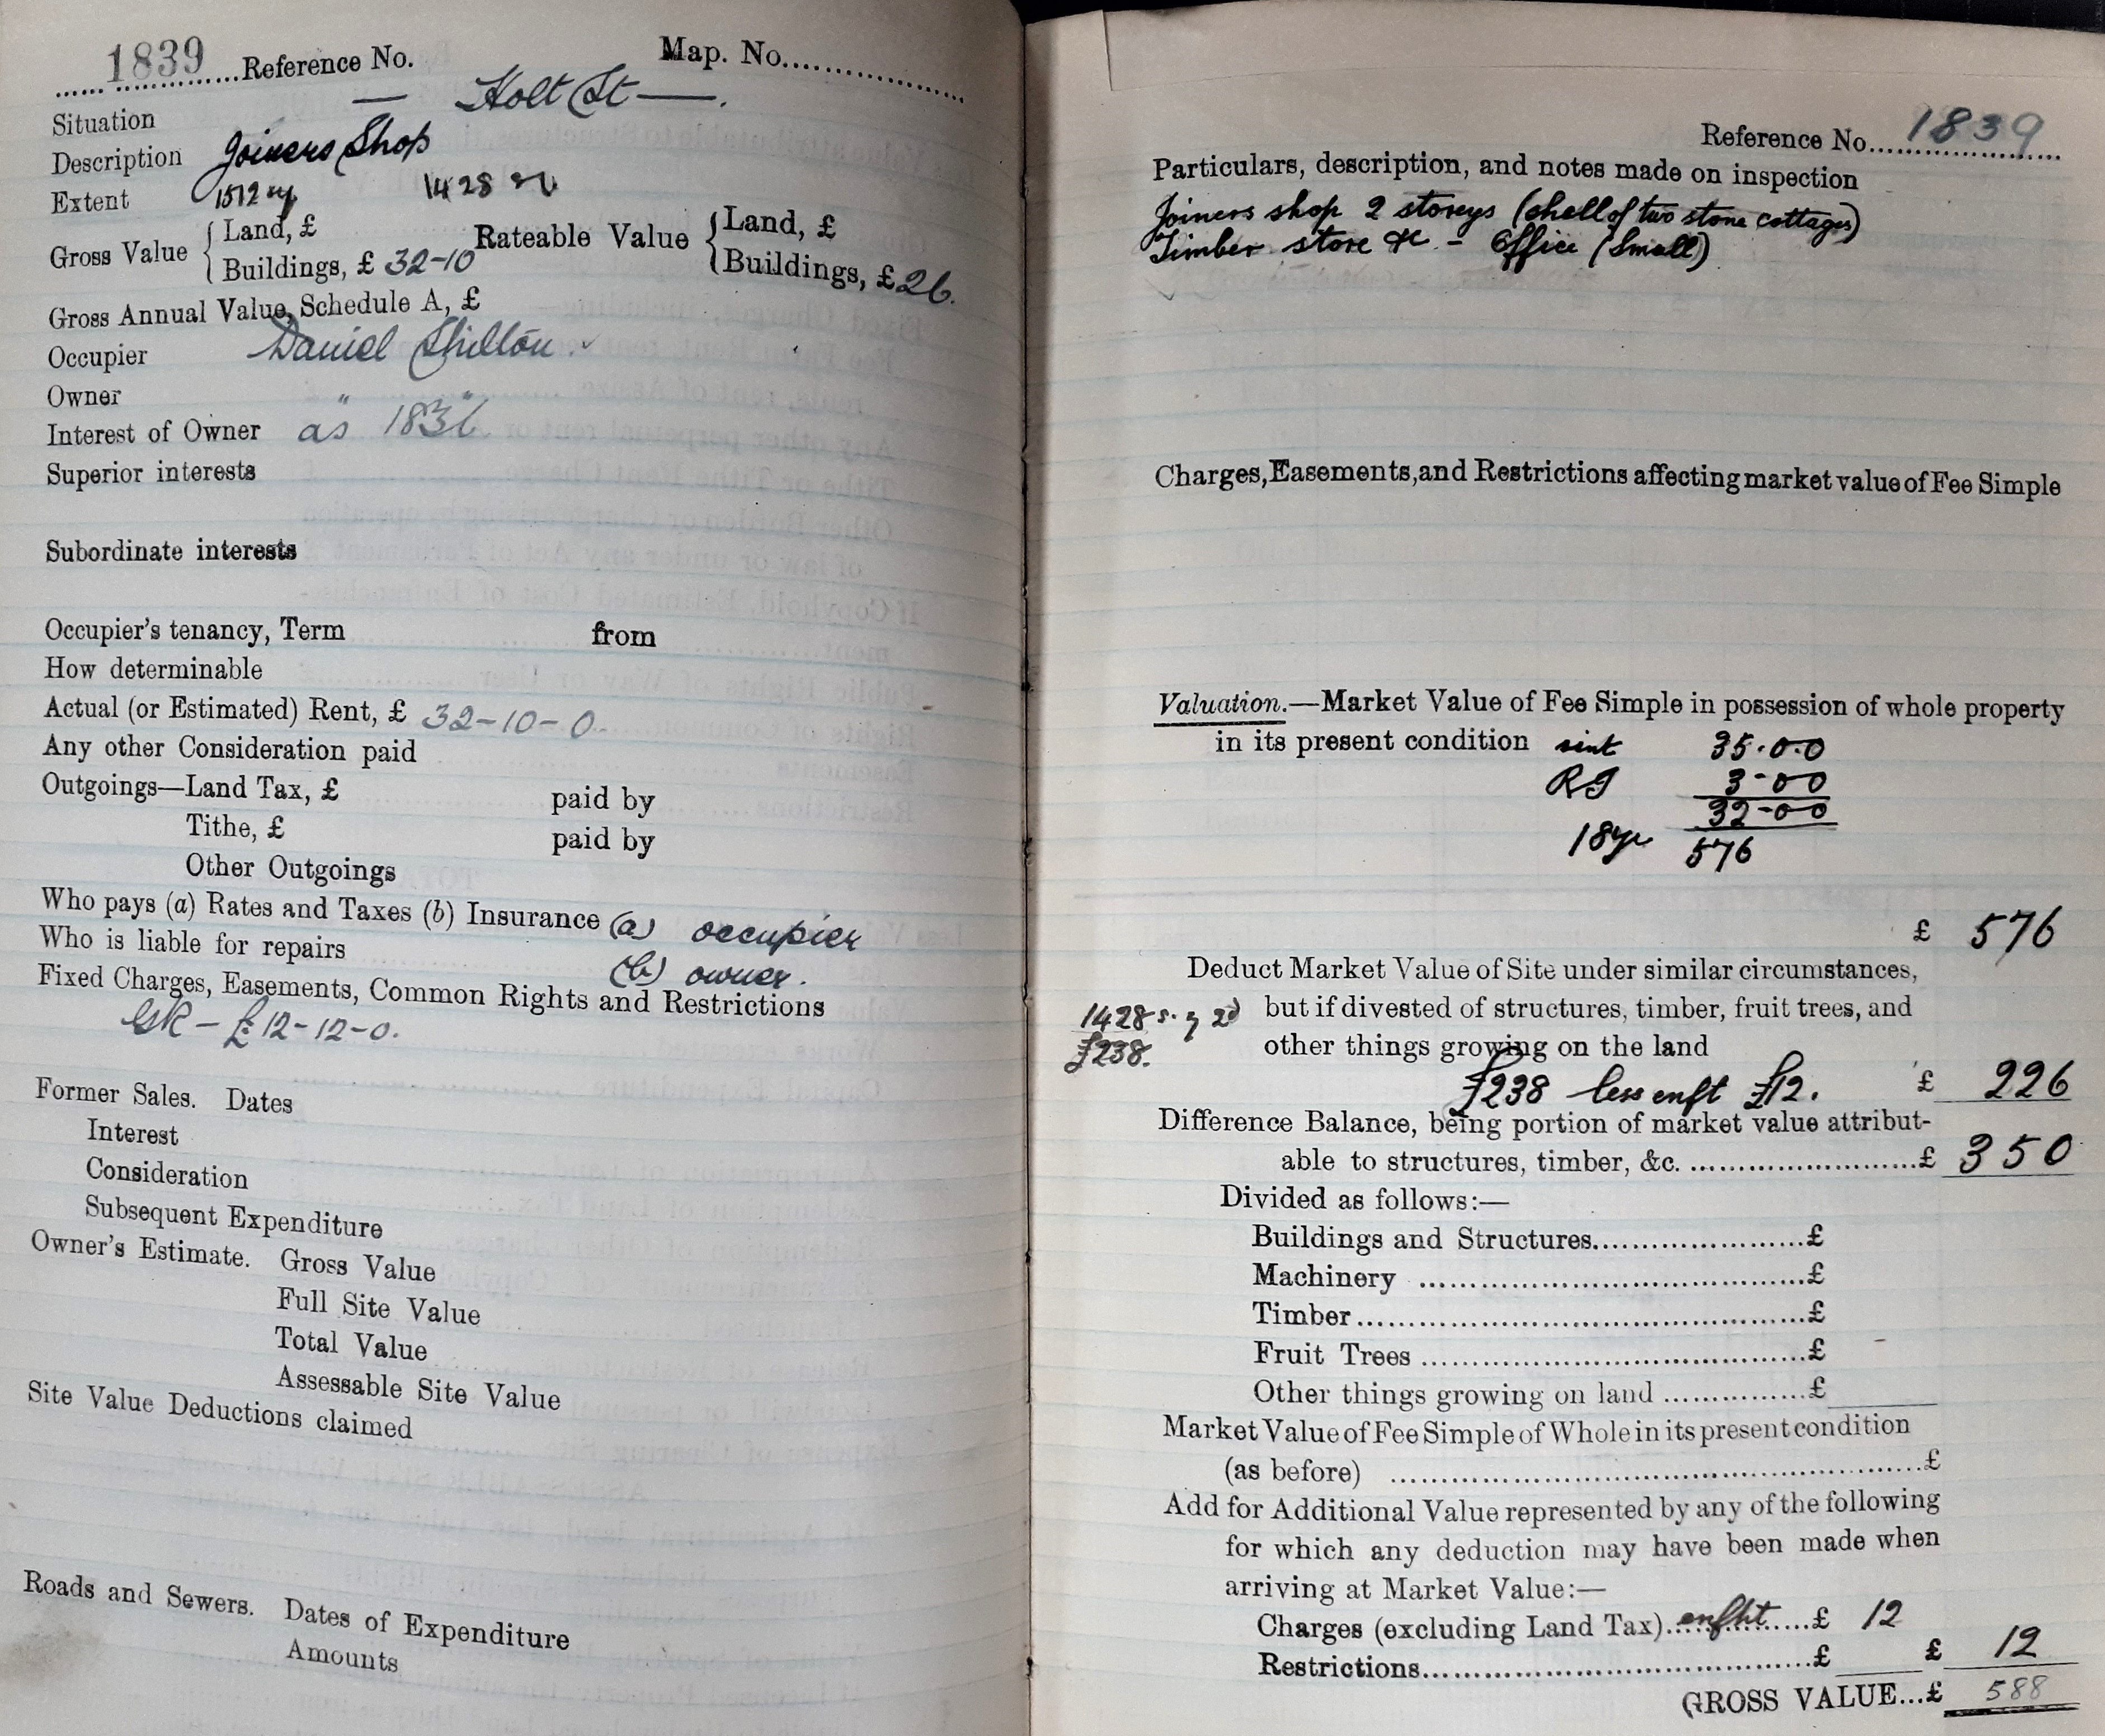 1839 Reference No. Map. No.
Situation — Holt St —
Description Joiners Shop
Extent 1512 sy 1428 sy
Gross Value { Land, £ Rateable Value { Land, £
Buildings, £ 32-10 Buildings, £ 26.
Gross Annual Value, Schedule A, £
Occupier Daniel Shilton
Owner " "
Interest of Owner as 1836
Superior interests
Subordinate interests
Occupier's tenancy, Term from
How determinable
Actual (or Estimated) Rent, £ 32-10-0
Any other Consideration paid
Outgoings—Land Tax, £ paid by
Tithe, £ paid by
Other Outgoings
Who pays (a) Rates and Taxes (b) Insurance (a) occupier
Who is liable for repairs (b) owner.
Fixed Charges, Easements, Common Rights and Restrictions
GR - £12-12-0.
Former Sales. Dates
Interest
Consideration
Subsequent Expenditure
Owner's Estimate. Gross Value
Full Site Value
Total Value
Assessable Site Value
Site Value Deductions claimed
Roads and Sewers. Dates of Expenditure
Amounts
Reference No. 1839
Particulars, description, and notes made on inspection
Joiners shop 2 storeys (shell of two stone cottages)
Timber store &c - Office (small)
Charges, Easements, and Restrictions affecting market value of Fee Simple
Valuation.—Market Value of Fee Simple in possession of whole property
in its present condition rent 35.0.0
3-0 0
32-0 0
18yr 576
£ 576
Deduct Market Value of Site under similar circumstances,
1428 s.y 2d but if divested of structures, timber, fruit trees, and
£238. other things growing on the land
£238 less enft £12. £ 226
Difference Balance, being portion of market value attribut-
able to structures, timber, &c. £ 350
Divided as follows:—
Buildings and Structures £
Machinery £
Timber £
Fruit Trees £
Other things growing on land £
Market Value of Fee Simple of Whole in its present condition
(as before) £
Add for Additional Value represented by any of the following
for which any deduction may have been made when
arriving at Market Value:—
Charges (excluding Land Tax) enfht £ 12
Restrictions £ £ 12
GROSS VALUE...£ 588